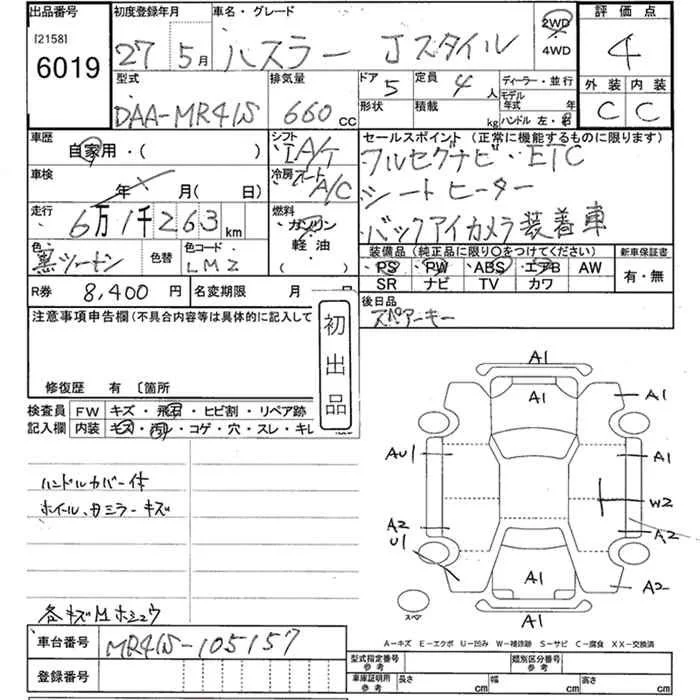 出品番号 初度登録年月 車名・グレード 評価点
[2158]
6019 27 5月 ハスラー Jスタイル 2WD 4WD 4
型式 排気量 ドア 定員 ディーラー・並行 外装 内装
DAA-MR41S 660 CC 5 4人 モデル年式 年 C C
形状 積載 kg ハンドル 左・右
車歴 シフト セールスポイント (正常に機能するものに限ります)
自家用・( ) IA/T フルセグナビ・ETC
車検 冷房 シートヒーター
年 月(日) オートA/C バックアイカメラ装着車
走行 燃料
6万1千263km ガソリン
軽油
( )
色 色替 色コード 装備品 (純正品に限り○をつけてください) 新車保証書
黒ツートン LMZ PS PW ABS エアB AW 有・無
SR ナビ TV カワ
R券 8,400円 名変期限 月 日 後日品
スペアーキー
注意事項申告欄(不具合内容等は具体的に記入して
初出品
修復歴 有 〔箇所
検査員 FW キズ・飛石・ヒビ割・リペア跡
記入欄 内装 キズ・汚レ・コゲ・穴・スレ・キレ
ハンドルカバー体
ホイール、ガミラーキズ
各キズMホシュウ
A1
A1
A1
AU1
A1
W2
A2
A2
U1
A1
A2
A1
スペア
A-キズ E-エクボ U-凹み W-補修跡 S-サビ C-腐食 XX-交換済
車台番号 MR41S-105157
登録番号
型式指定番号 参考 類別区分番号 参考
車庫証明用 参考 長さ cm 幅 cm 高さ cm